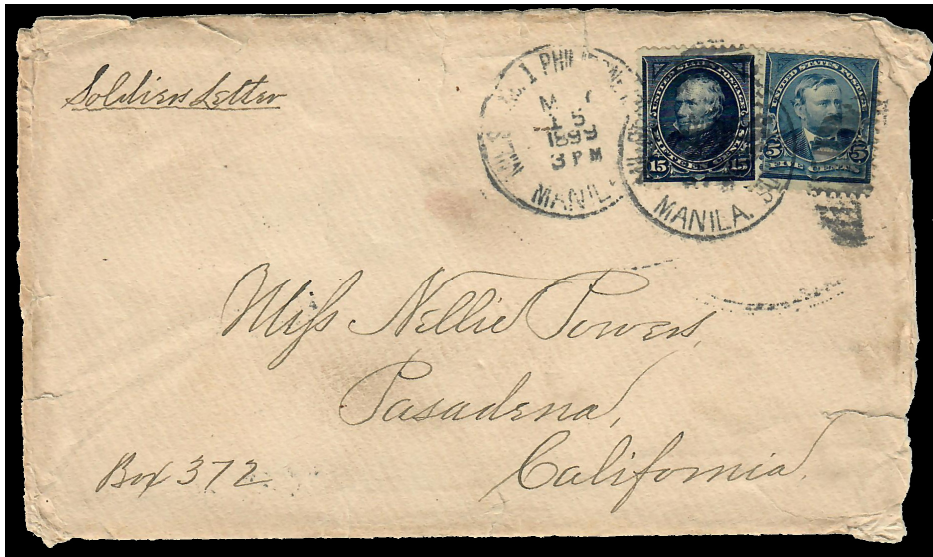 Soldiers Letter
MIL. NO. 1 PHIL.
M
15
1899
3 PM
MANIL
UNITED STATES POSTAGE
15 FIFTEEN CENTS 15
UNITED STATES POSTAGE
5 FIVE CENTS 5
MANILA.
Miss Nellie Powers,
Pasadena,
California.
Box 372